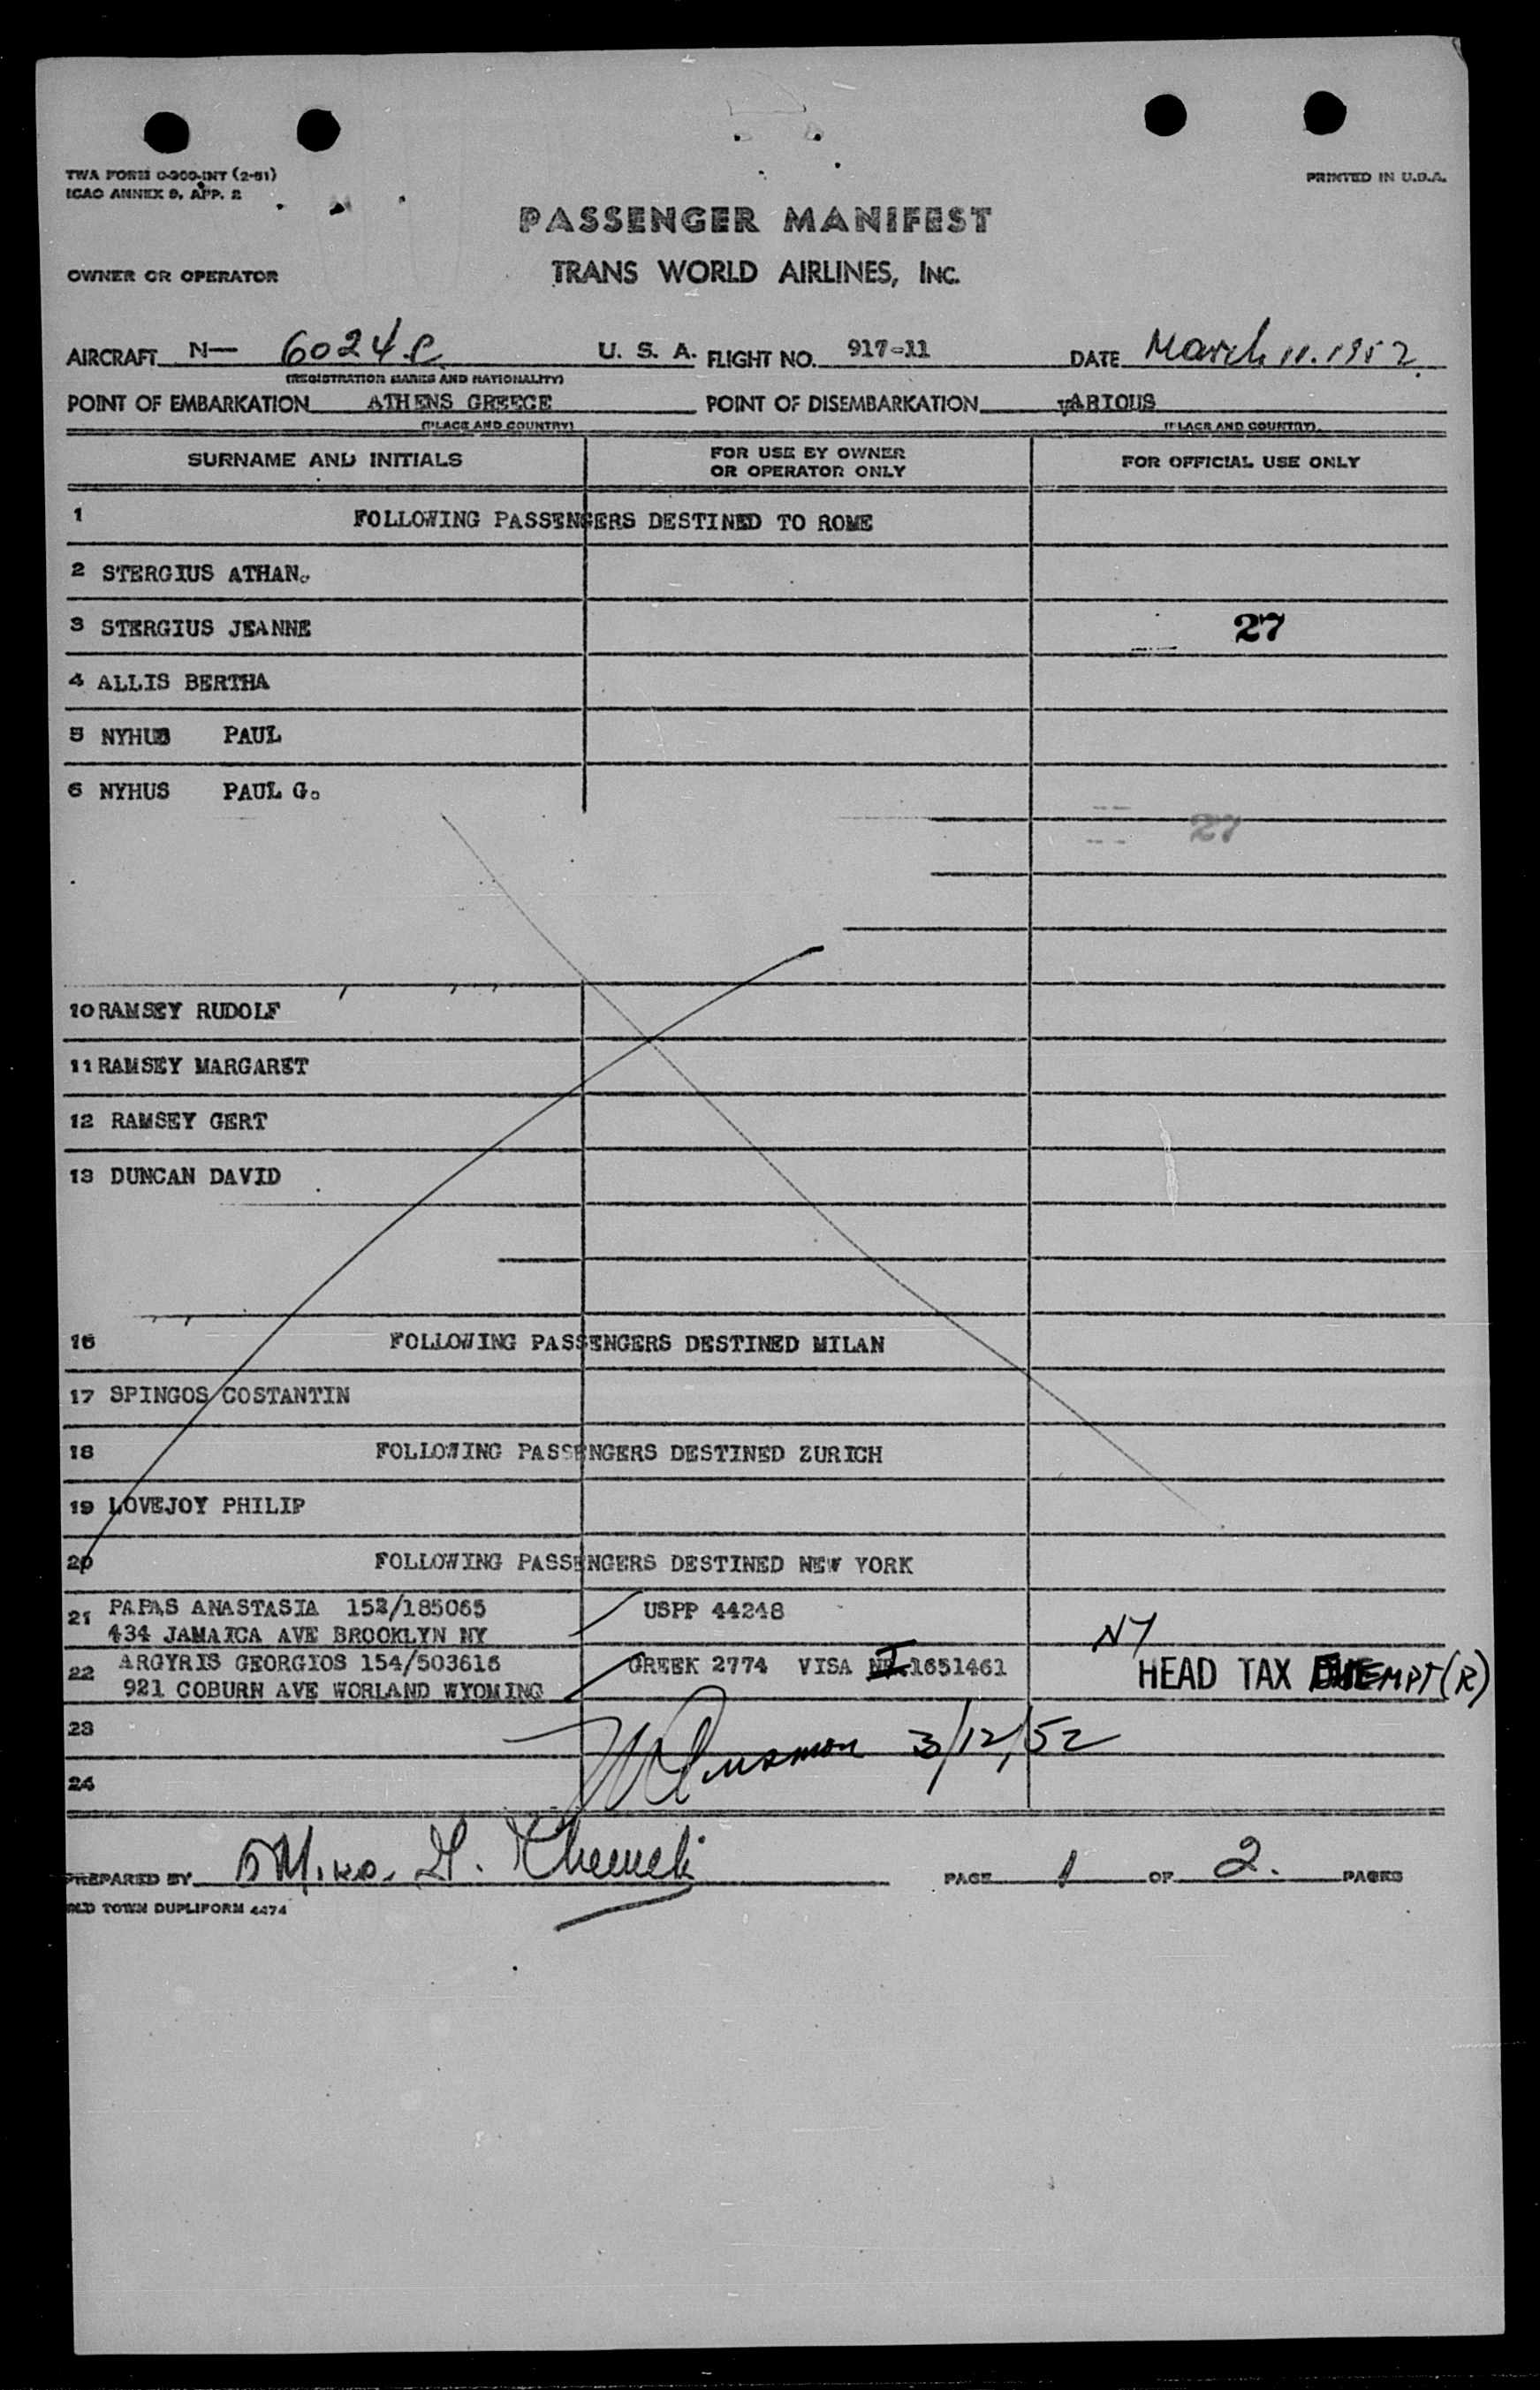 TWA FORM 0-200-INT (2-51)
ICAO ANNEX 9, APP. 2
PRINTED IN U.S.A.
PASSENGER MANIFEST
OWNER OR OPERATOR TRANS WORLD AIRLINES, INC.
AIRCRAFT N— 6024C U. S. A. FLIGHT NO. 917-11 DATE March 11. 1952
(REGISTRATION MARKS AND NATIONALITY)
POINT OF EMBARKATION ATHENS GREECE POINT OF DISEMBARKATION VARIOUS
(PLACE AND COUNTRY) (PLACE AND COUNTRY)
SURNAME AND INITIALS FOR USE BY OWNER OR OPERATOR ONLY FOR OFFICIAL USE ONLY
1 FOLLOWING PASSENGERS DESTINED TO ROME
2 STERGIUS ATHAN.
3 STERGIUS JEANNE 27
4 ALLIS BERTHA
5 NYHUS PAUL
6 NYHUS PAUL G.
27
10 RAMSEY RUDOLF
11 RAMSEY MARGARET
12 RAMSEY GERT
13 DUNCAN DAVID
16 FOLLOWING PASSENGERS DESTINED MILAN
17 SPINGOS COSTANTIN
18 FOLLOWING PASSENGERS DESTINED ZURICH
19 LOVEJOY PHILIP
20 FOLLOWING PASSENGERS DESTINED NEW YORK
21 PAPAS ANASTASIA 152/185065 USPP 44248
434 JAMAICA AVE BROOKLYN NY NY
22 ARGYRIS GEORGIOS 154/503616 GREEK 2774 VISA I 1651461 HEAD TAX EXEMPT (R)
921 COBURN AVE WORLAND WYOMING
23 3/12/52
24
PREPARED BY PAGE 1 OF 2. PAGES
OLD TOWN DUPLIFORM 4474